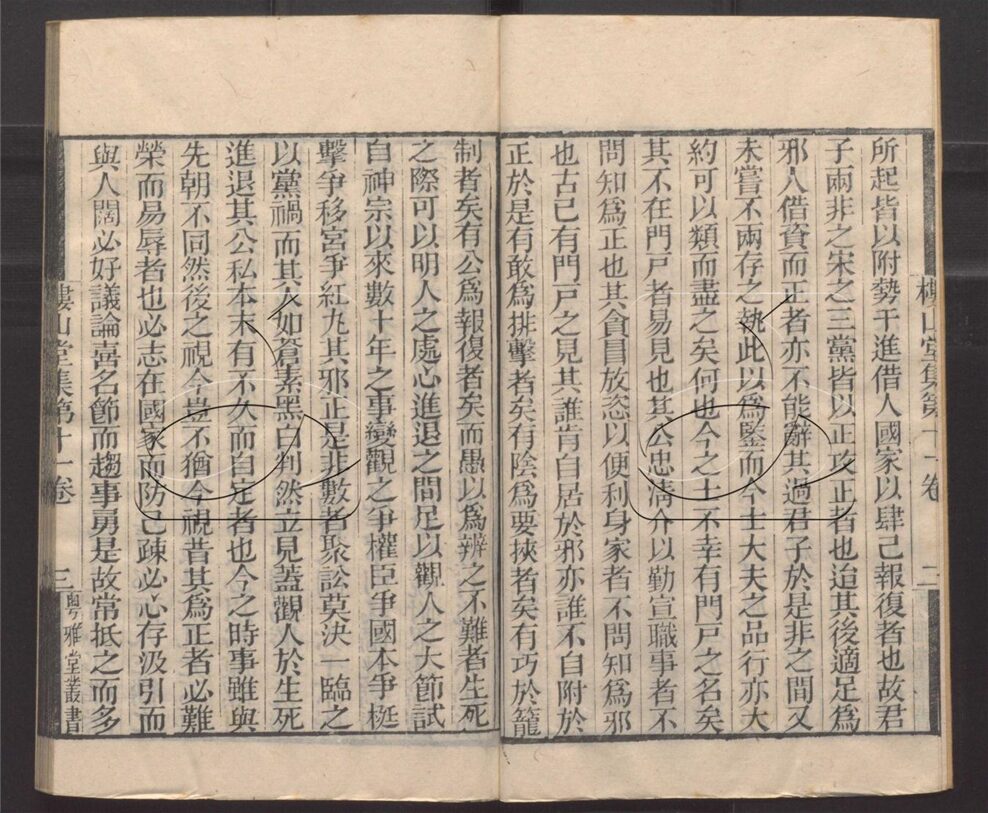 樓山堂集第十一卷 二
所起皆以附勢干進借人國家以肆己報復者也故君
子兩非之宋之三黨皆以正攻正者也迨其後適足為
邪人借資而正者亦不能辭其過君子於是非之間又
未嘗不兩存之執此以為鑒而今士大夫之品行亦大
約可以類而盡之矣何也今之士不幸有門戸之名矣
其不在門戸者易見也其公忠淸介以勤宣職事者不
問知爲正也其貪冒放恣以便利身家者不問知爲邪
也古已有門戸之見其誰肯自居於邪亦誰不自附於
正於是有敢爲排擊者矣有陰爲要挾者矣有巧於籠
制者矣有公爲報復者矣而愚以爲辨之不難者生死
之際可以明人之處心進退之間足以觀人之大節試
自神宗以來數十年之事變觀之爭權臣爭國本爭梃
擊爭移宮爭紅丸其邪正是非數者聚訟莫決一臨之
以黨禍而其人如蒼素黑白判然立見蓋觀人於生死
進退其公私本末有不久而自定者也今之時事雖與
先朝不同然後之視今豈不猶今視昔其爲正者必難
榮而易辱者也必志在國家而防己疎必心存汲引而
與人闊必好議論喜名節而趨事勇是故常抵之而多
樓山堂集第十一卷 三 粵雅堂叢書